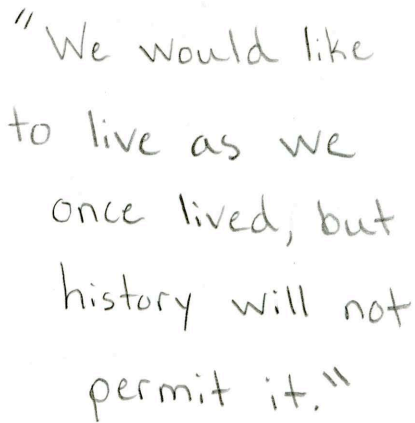 "We would like
to live as we
once lived, but
history will not
permit it."